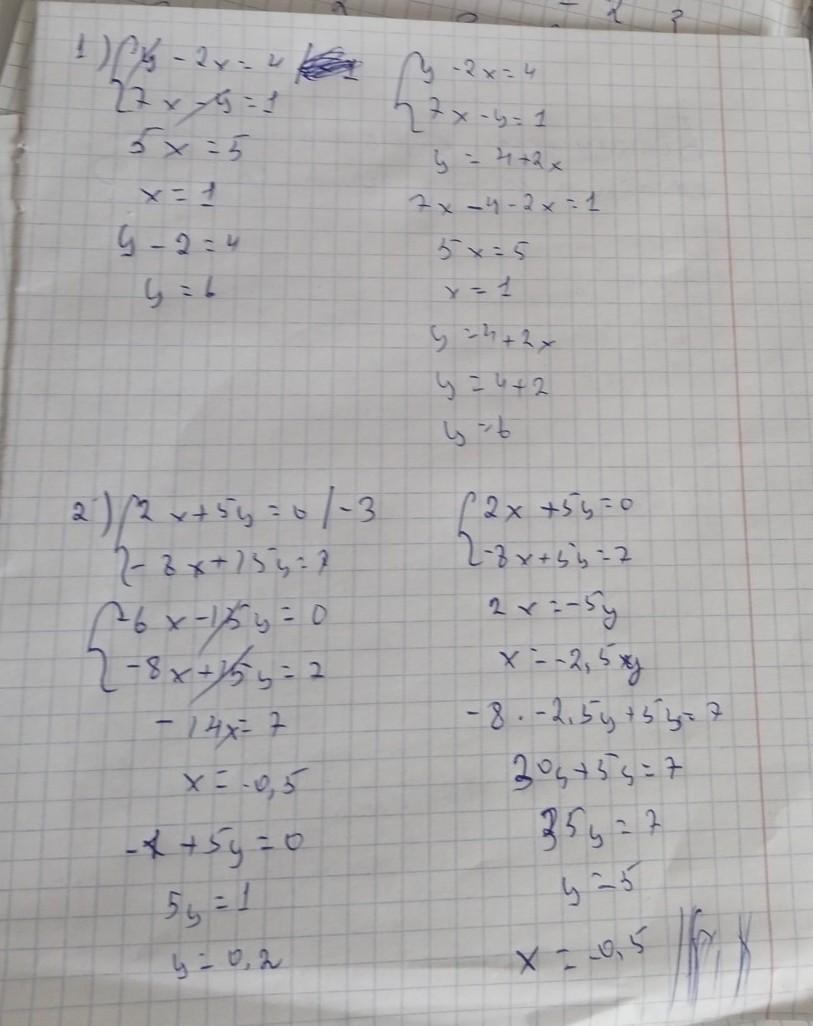 1) { y - 2x = 4
{ 7x - y = 1
5x = 5
x = 1
y - 2 = 4
y = 6
{ y - 2x = 4
{ 7x - y = 1
y = 4+2x
7x - 4 - 2x = 1
5x = 5
x = 1
y = 4+2x
y = 4+2
y = 6
2) { 2x+5y = 0 /-3
{ -8x+15y = 7
{ -6x-15y = 0
{ -8x+15y = 7
-14x = 7
x = -0,5
-1 +5y = 0
5y = 1
y = 0,2
{ 2x +5y = 0
{ -8x+5y = 7
2x = -5y
x = -2,5y
-8 · -2,5y+5y = 7
30y+5y = 7
35y = 7
y = 5
x = -0,5